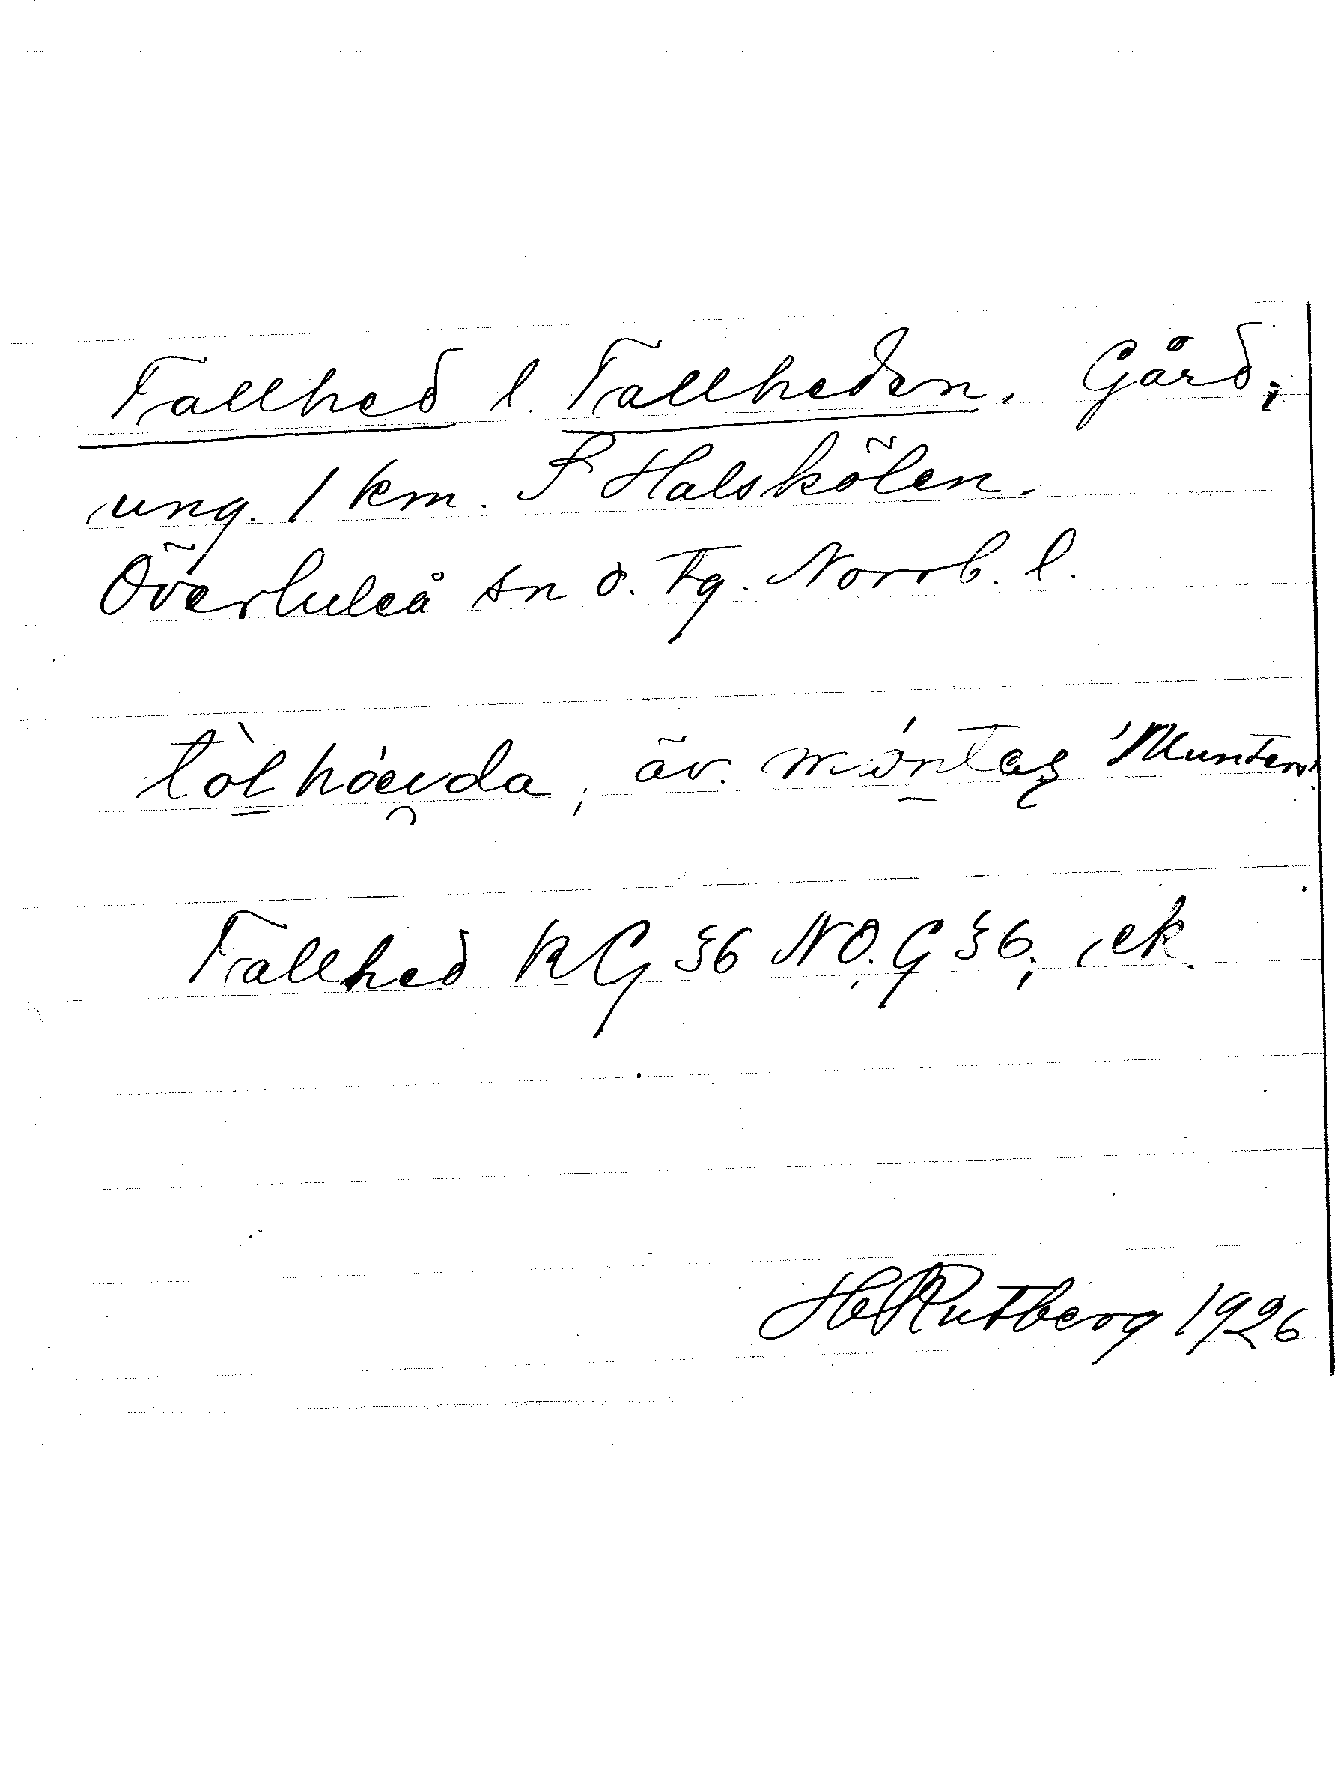 Tallhed l. Tallheden. Gård,
ung. 1 km. S Halskölen.
Överluleå sn o. tg. Norrb. l.
tòlhóeda, äv. móntas 'Munters'.
Tallhed KG 36 NO. G 36; ek.
H Rutberg 1926